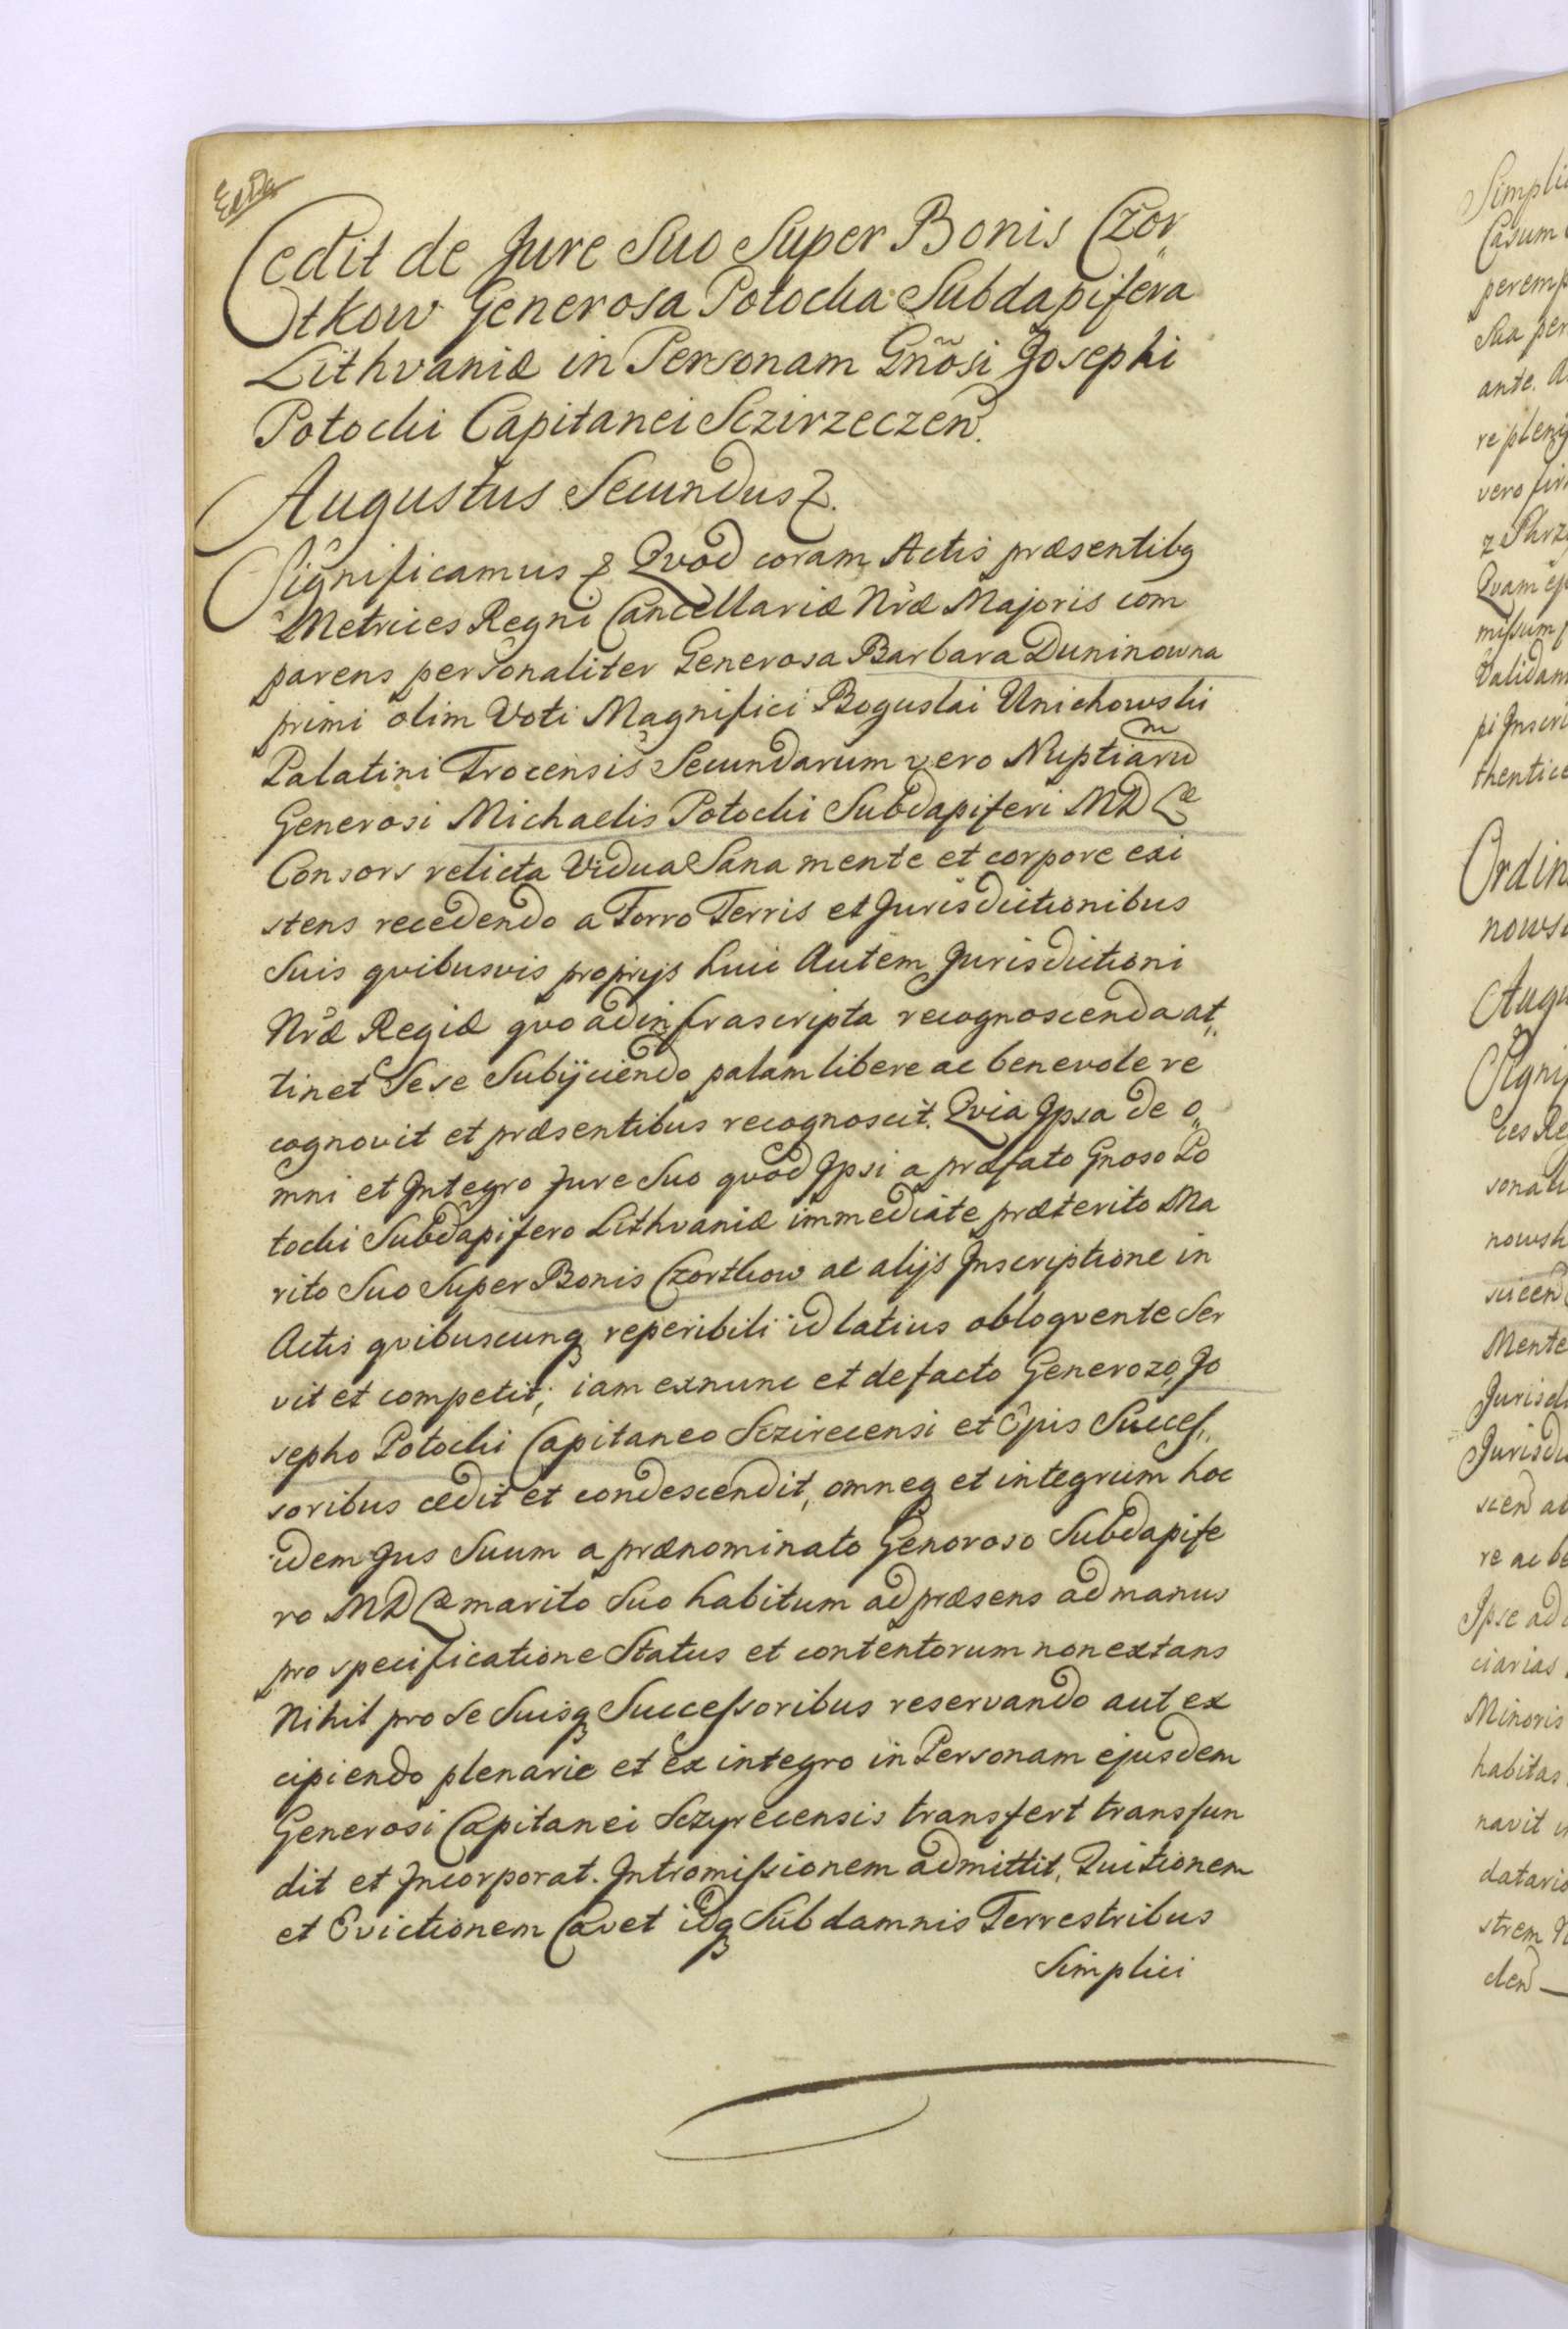 Cedit de Jure Suo Super Bonis Czor„
tkow Generosa Potocka Subdapifera
Lithvaniæ in Personam Gñosi Josephi
Potocki Capitanei Sczirzeczen.
Augustus Secundus &.
Significamus & Qvod coram Actis præsentibq
Metrices Regni Cancellariæ Nræ Majoris com
parens personaliter Generosa Barbara Duninowna
primi olim Voti Magnifici Boguslai Unichowski
Palatini Trocensis Secundarum vero Nuptiaru
Generosi Michaelis Potocki Subdapiferi MDLæ
Consors relicta Vidua Sana mente et corpore exi
stens recedendo a Forro Terris et Jurisdictionibus
Suis qvibusvis proprijs huic Autem Jurisdictioni
Nræ Regiæ qvo ad infrascripta recognoscenda at„
tinet Sese Subijciendo palam libere ac benevole re
cognovit et præsentibus recognoscit. Qvia Ipsa de o„
mni et Integro Jure Suo qvod Ipsi a præfato Gnoso Po
tocki Subdapifero Lithvaniæ immediate præterito Ma
rito Suo Super Bonis Czortkow ac alijs Inscriptione in
Actis qvibuscunq reperibili id latius obloqvente Ser
vit et competit; iam exnunc et defacto Generozo Jo
sepho Potocki Capitaneo Sczirecensi et Ejus Succes„
soribus cædit et condescendit, omneq et integrum hoc
idem Jus Suum a prænominato Genoroso Subdapife
ro MDLæ marito Suo habitum ad præsens ad manus
pro specificatione Status et contentorum non extans
Nihil pro se Suisq Successoribus reservando aut ex
cipiendo plenarie et ex integro in Personam ejusdem
Generosi Capitanei Sczyrecensis transfert transfun
dit et Incorporat. Intromissionem admittit, Tuitionem
et Evictionem Cavet idq Sub damnis Terrestribus
Simplici
Simpli
Casum
peremp
Sua per
ante.
re plen
vero
Qvam
missum
Validam
pi Inscri
thentice
Ordin
nowsk
Augu
Signi
ces Re
sonali
nowsk
Mente
Jurisdi
Jurisdi
scen ac
re ac be
Ipse ad
ciarias
Minoris
habitas
navit
datario
strem
den